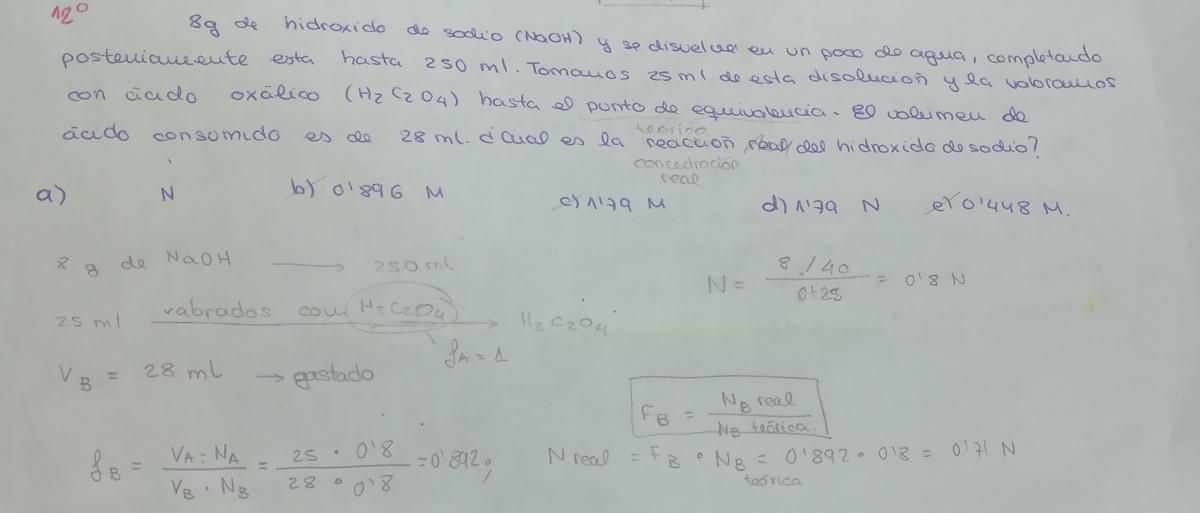 12º
8g de hidroxido de sodio (NaOH) y se disuelve en un poco de agua, completando
posteriamente esta hasta 250 ml. Tomamos 25 ml de esta disolucion y la valoramos
con ácido oxálico (H2C2O4) hasta el punto de equivalencia. El volumen de
ácido consumido es de 28 ml. ¿cual es la reacción real del hidroxido de sodio?
teórico
concentración
real
a) N b) 0'896 M c) 1'79 M d) 1'79 N e) 0'448 M.
8 g de NaOH → 250 ml
N = 8/40 / 0'25 = 0'8 N
25 ml valorados con H2C2O4 → H2C2O4
fA = 1
VB = 28 ml → gastado
FB = NB real / NB teórica.
fB = VA · NA / VB · NB = 25 · 0'8 / 28 · 0'8 = 0'892; N real = FB · NB = 0'892 · 0'8 = 0'71 N
teórica